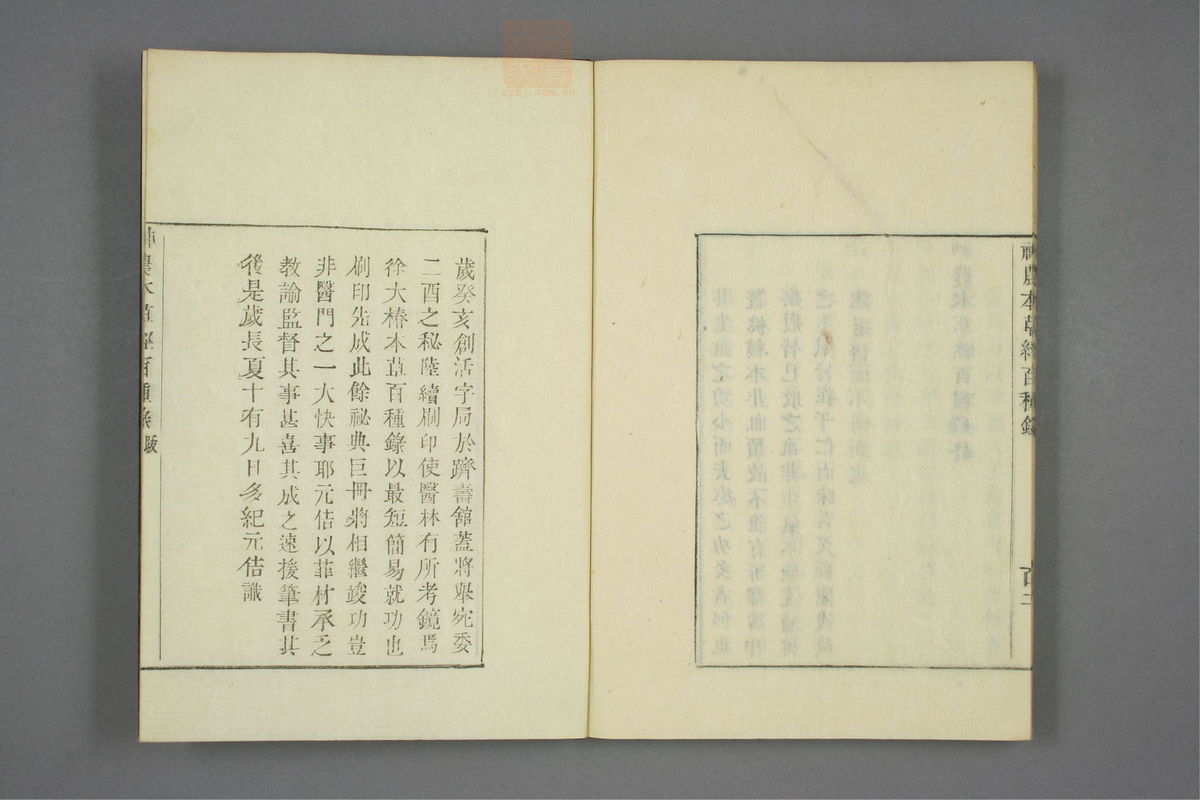 神農本草經百種錄
百二
歲癸亥創活字局於躋壽舘蓋將舉宛委
二酉之秘陸續刷印使醫林有所考鏡焉
徐大椿本草百種錄以最短簡易就功也
刷印先成此餘祕典巨冊將相繼竣功豈
非醫門之一大快事耶元佶以菲材承乏
教諭監督其事甚喜其成之速援筆書其
後是歲長夏十有九日多紀元佶識
神農本草經百種錄跋